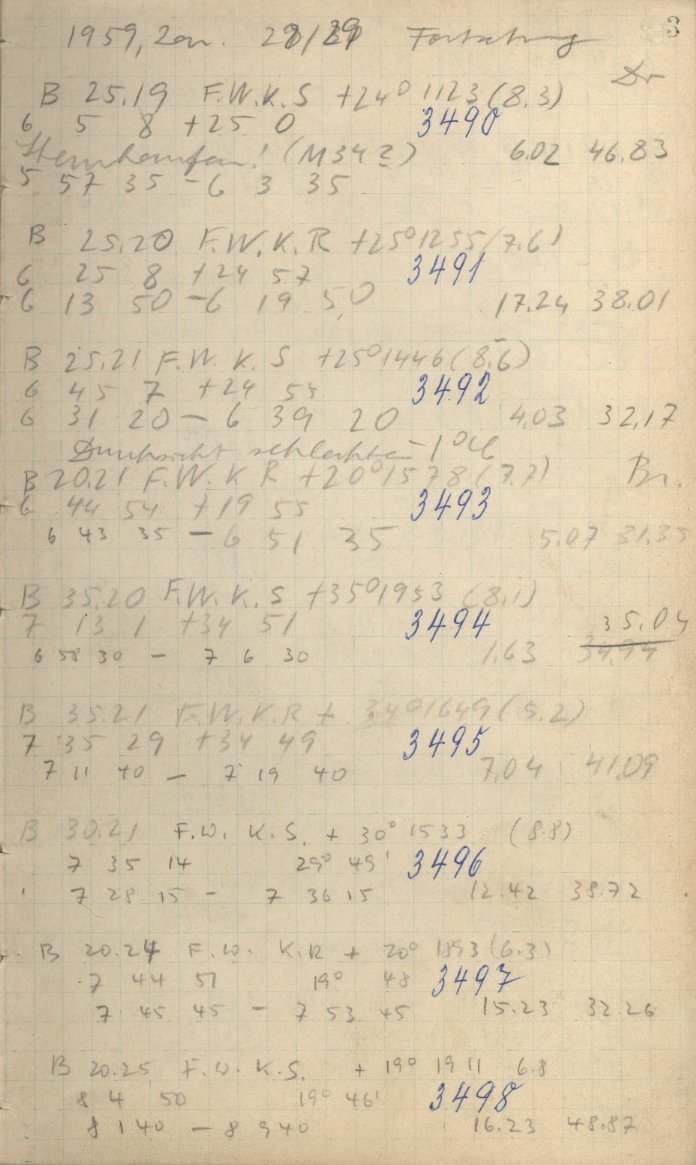 1959, Jan. 28/29 Fortsetzung
3
Dr
B 25.19 F.W.K.S +24° 1123 (8.3)
6 5 8 +25 0 3490
Sternhaufen! (M34?) 6.02 46.83
5 57 35 – 6 3 35
B 25.20 F.W.K.R +25° 1255 (7.6)
6 25 8 +24 57 3491
6 13 50 – 6 19 50 17.24 38.01
B 25.21 F.W.K.S +25° 1446 (8.6)
6 45 7 +24 55 3492
6 31 20 – 6 39 20 4.03 32.17
Durchsicht schlechter
B 20.21 F.W.K R +20° 1578 (7.7) Br.
6 44 54 +19 55 3493
6 43 35 – 6 51 35 5.07 31.35
B 35.20 F.W.K.S +35° 1953 (8.1)
7 13 1 +34 51 3494 35.04
6 58 30 – 7 6 30 1.63 34.94
B 35.21 F.W.K.R + 34° 1649 (5.2)
7 35 29 +34 49 3495
7 11 40 – 7 19 40 7.04 41.09
B 30.21 F.W. K.S. + 30° 1533 (8.8)
7 35 14 29° 49' 3496
7 28 15 – 7 36 15 12.42 38.72
B 20.24 F.W. K.R + 20° 1893 (6.3)
7 44 51 19° 48 3497
7 45 45 – 7 53 45 15.23 32.26
B 20.25 F.W. K.S. + 19° 1911 6.8
8 4 50 19° 46' 3498
8 1 40 – 8 9 40 16.23 48.87